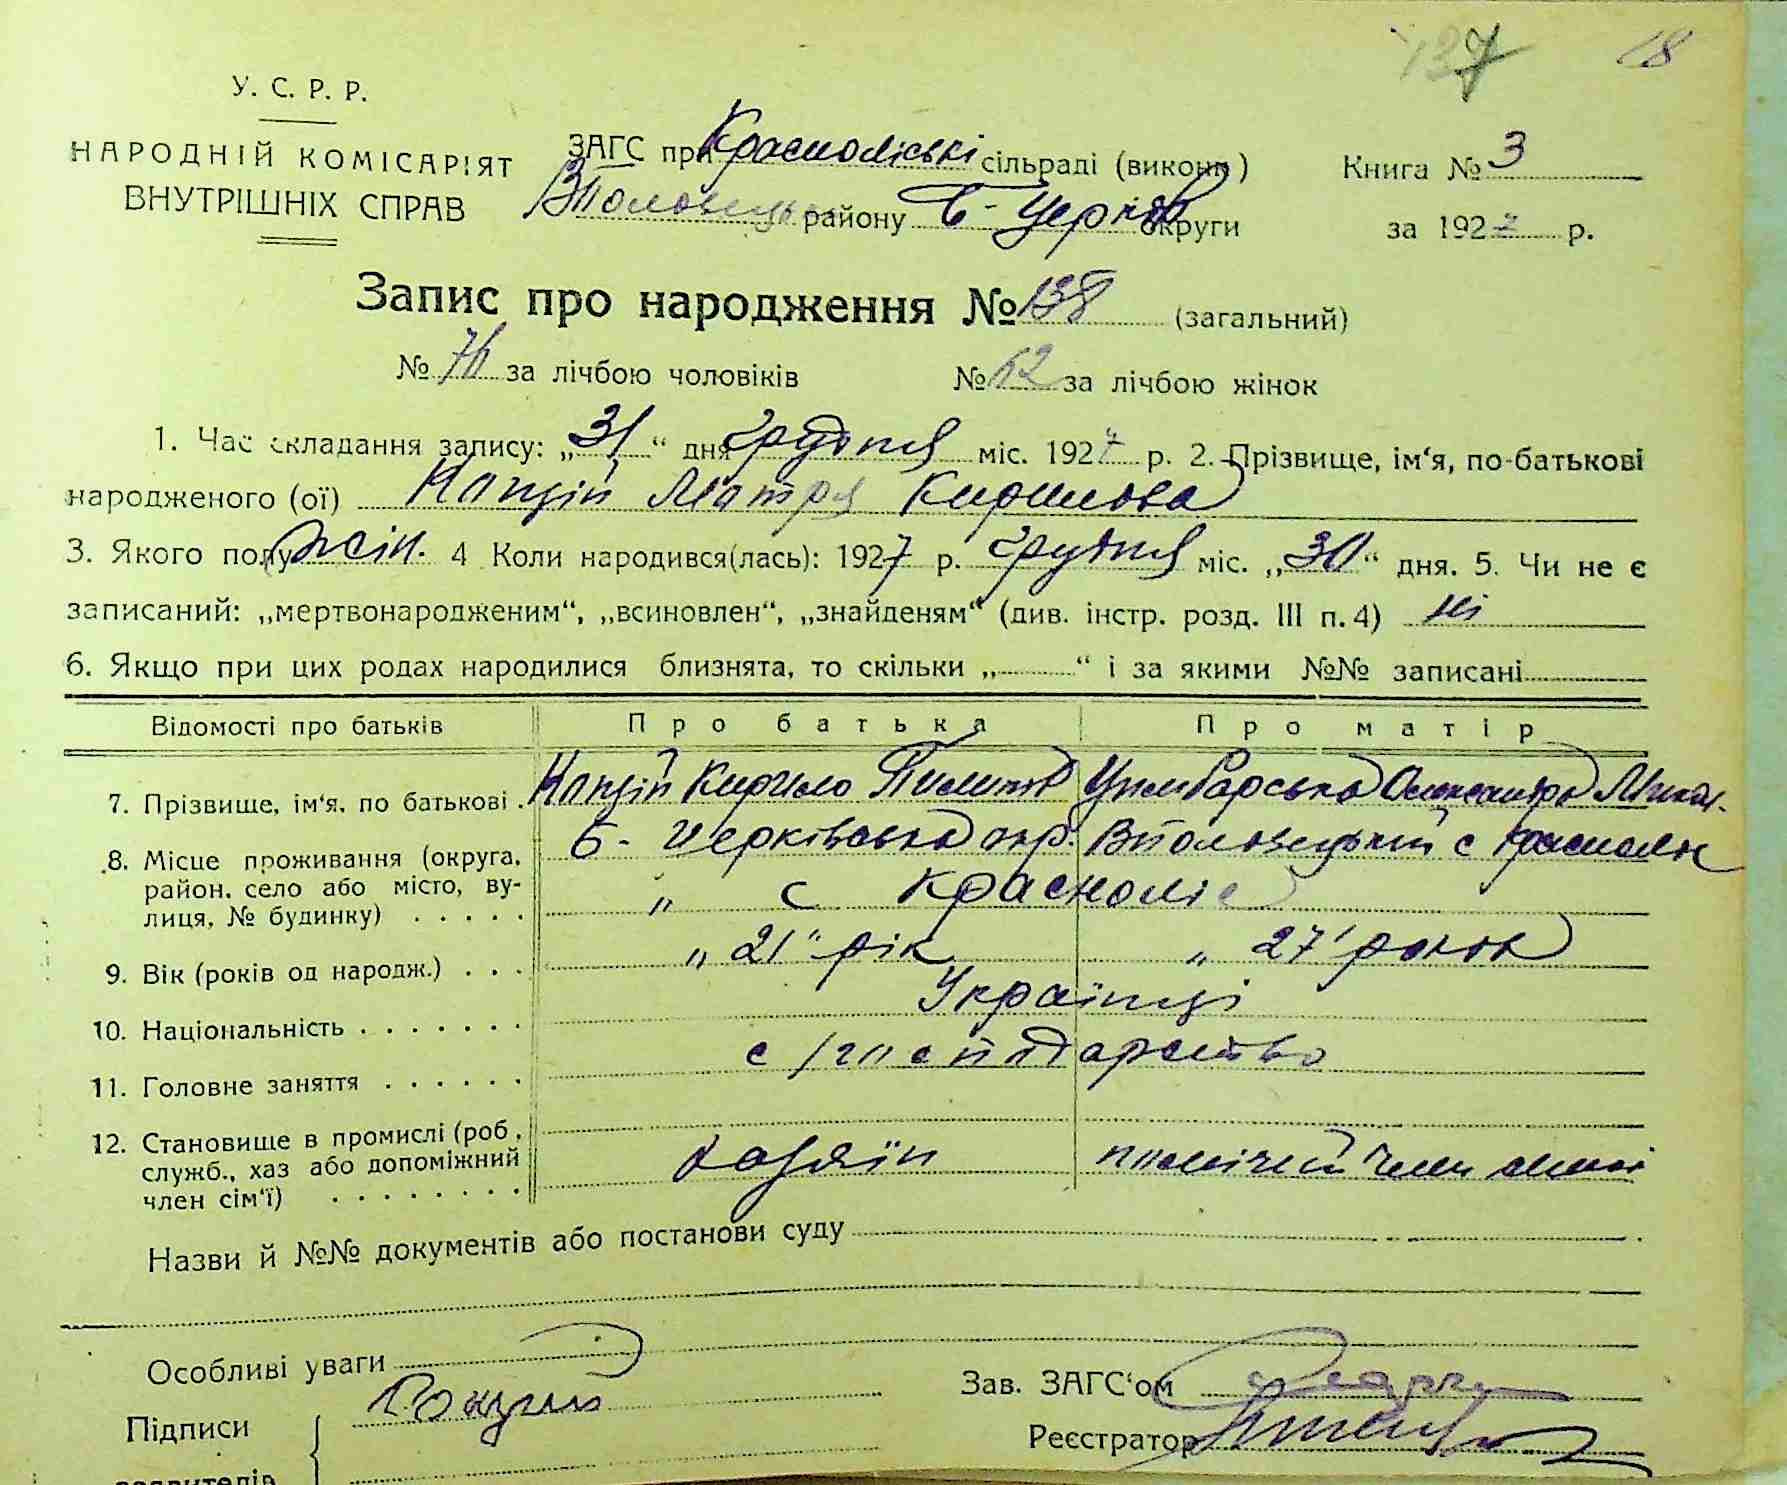 137 18
У. С. Р. Р.
НАРОДНІЙ КОМІСАРІЯТ
ВНУТРІШНІХ СПРАВ
ЗАГС при Красноліські сільраді (викон.)
району Б-Церків округи
Книга № 3
за 1927 р.
Запис про народження № 138 (загальний)
№ 76 за лічбою чоловіків № 62 за лічбою жінок
1. Час складання запису: „31“ дня грудня міс. 1927 р. 2. Прізвище, ім‘я, по-батькові
народженого (ої) Мотря Кирилова
3. Якого полу жін. 4 Коли народився(лась): 1927 р. грудня міс. „30“ дня. 5. Чи не є
записаний: „мертвонародженим“, „всиновлен“, „знайденям“ (див. інстр. розд. III п. 4) ні
6. Якщо при цих родах народилися близнята, то скільки „ “ і за якими №№ записані
Відомості про батьків Про батька Про матір
7. Прізвище, ім‘я, по батькові Кирило Пилипов Цимбарська Олександра Микол.
8. Місце проживання (округа, район, село або місто, вулиця, № будинку) Б-Церківська окр. Володецький с Красноліс
„ с Красноліс
9. Вік (років од народж.) „21“ рік „27“ років
10. Національність Українці
11. Головне заняття с/господарство
12. Становище в промислі (роб., служб., хаз або допоміжний член сім‘ї) хазяїн помічний член сімї
Назви й №№ документів або постанови суду
Особливі уваги
Підписи
заявителів
Зав. ЗАГС‘ом
Реєстратор